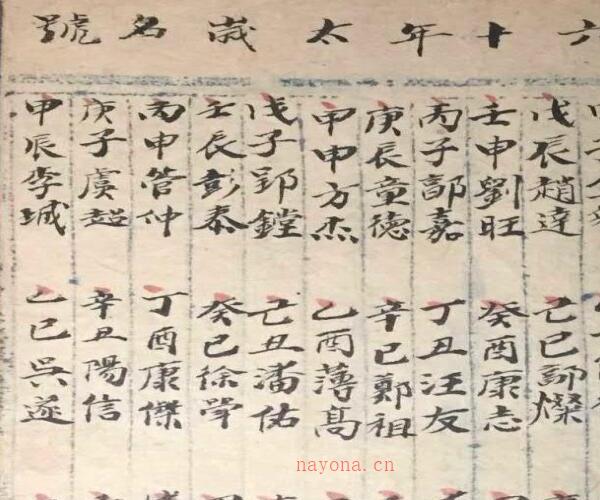 六十年太歲名號
戊辰趙達
壬申劉旺
丙子郭嘉
庚辰童德
甲申方杰
戊子郢鏜
壬辰彭泰
丙申管仲
庚子虞超
甲辰李城
己巳郭燦
癸酉康志
丁丑汪友
辛巳鄭祖
乙酉薄高
己丑潘佑
癸巳徐
丁酉康傑
辛丑陽信
乙巳吳遂
nayona.cn